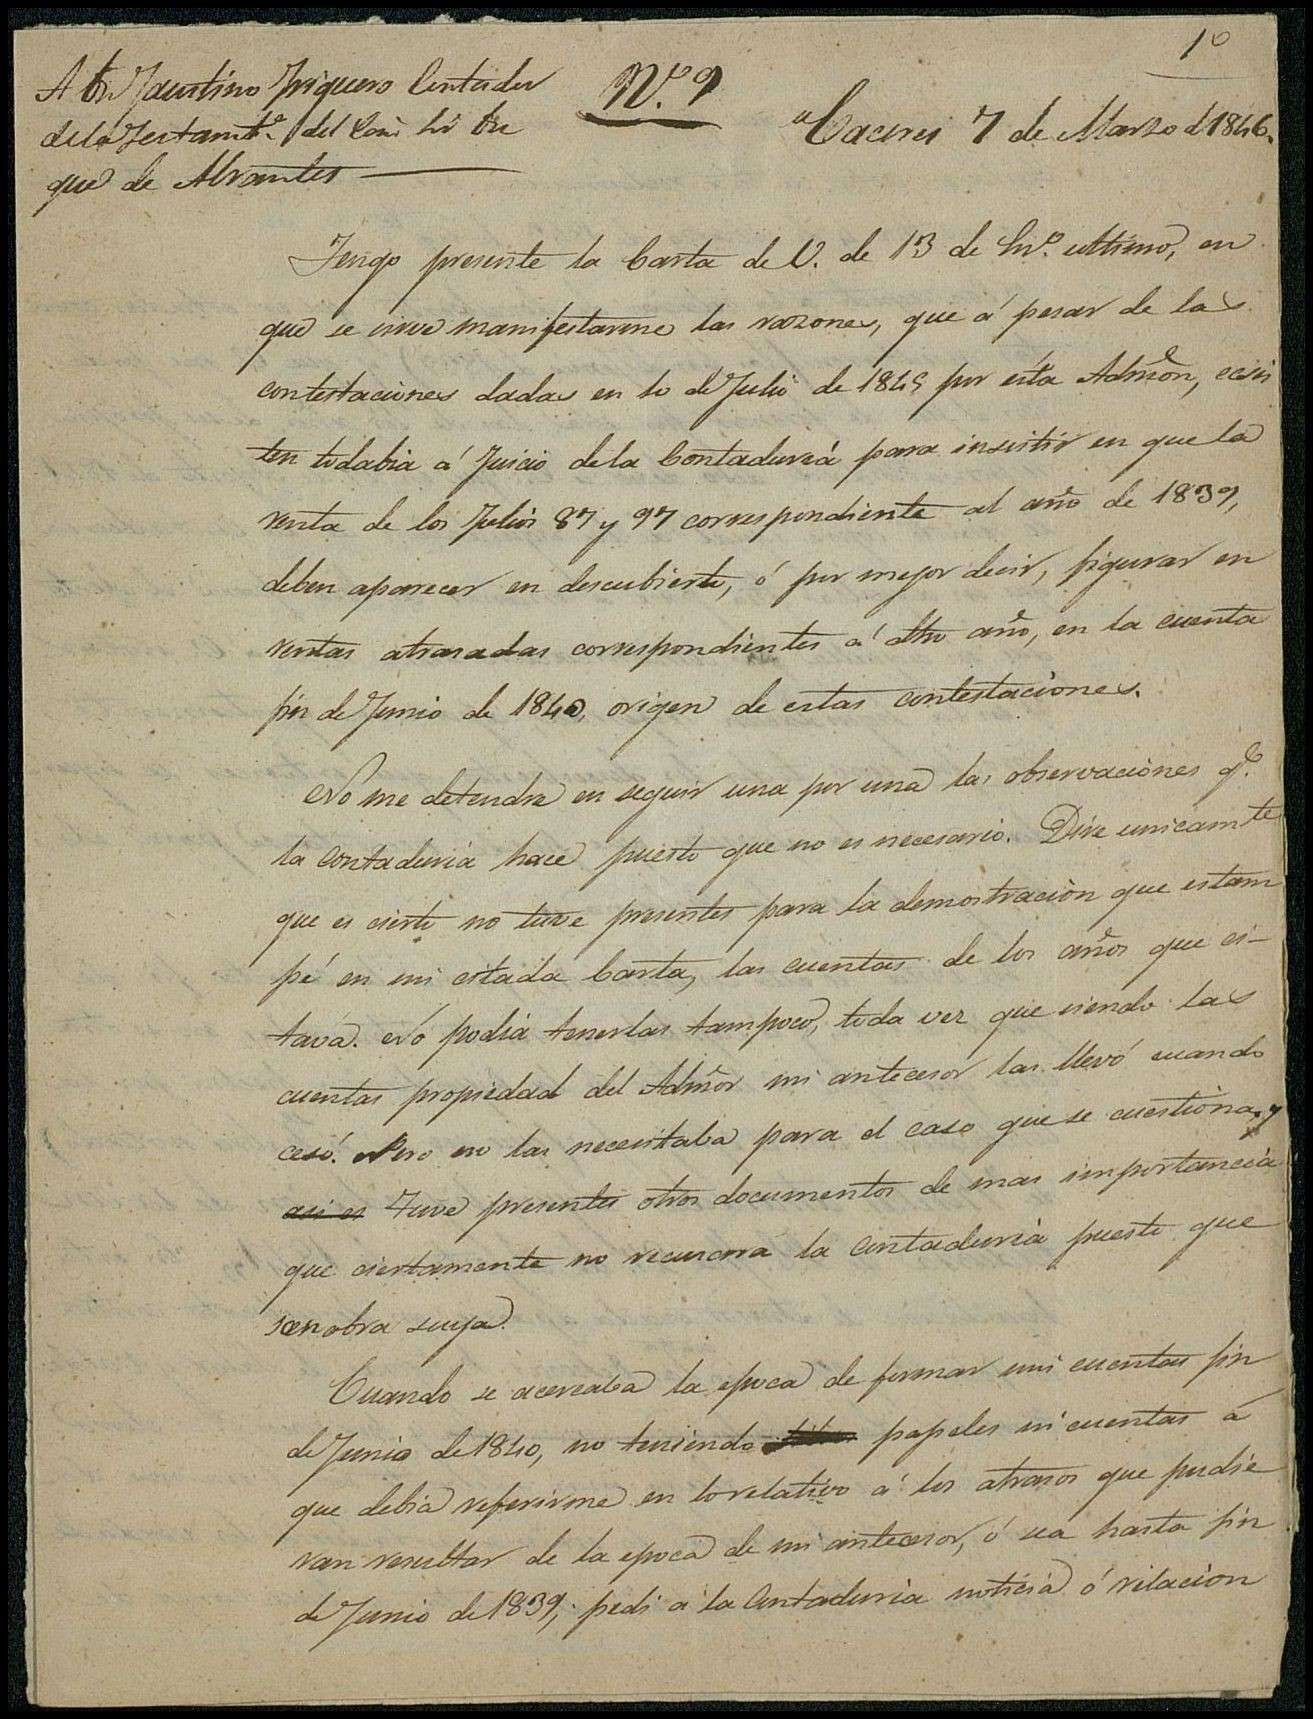 1º
Nº. 9
A Dn Faustino Figuero Contador
de la Testamtª. del Exmo Sor Du
que de Abrantes
Caceres 7 de Marzo d 1846.
Tengo presente la Carta de V. de 13 de Enº. ultimo, en
que se sirve manifestarme las razones, que á pesar de las
contestaciones dadas en 10 de Julio de 1845 por ésta Admon, ecsis
ten todabia á Juicio de la Contaduria para insistir en que la
renta de los Julios 87 y 97 correspondiente al año de 1839,
deben aparecer en descubierto, ó por mejor decir, figurar en
rentas atrasadas correspondientes á dho año, en la cuenta
fin de Junio de 1840, origen de estas contestaciones.
No me detendre en seguir una por una las observaciones qe.
la contaduria hace puesto que no es necesario. Dire unicamte
que es cierto no tuve presentes para la demostracion que estam
pé en mi citada Carta, las cuentas de los años que ci-
tava. Nó podia tenerlas tampoco, toda vez que siendo las
cuentas propiedad del Admor mi antecesor las llevó cuando
cesó. Pero no las necesitaba para el caso que se cuestiona, y
asi es Tuve presentes otros documentos de mas importancia
que ciertamente no recusará la contaduria puesto que
son obra suya.
Cuando se acercaba la epoca de formar mis cuentas fin
de Junio de 1840, no teniendo papeles ni cuentas á
que debia referirme en lo relativo á los atrasos que pudie
ran resultar de la epoca de mi antecesor, ó sea hasta fin
de Junio de 1839, pedi á la Contaduria noticia ó relacion